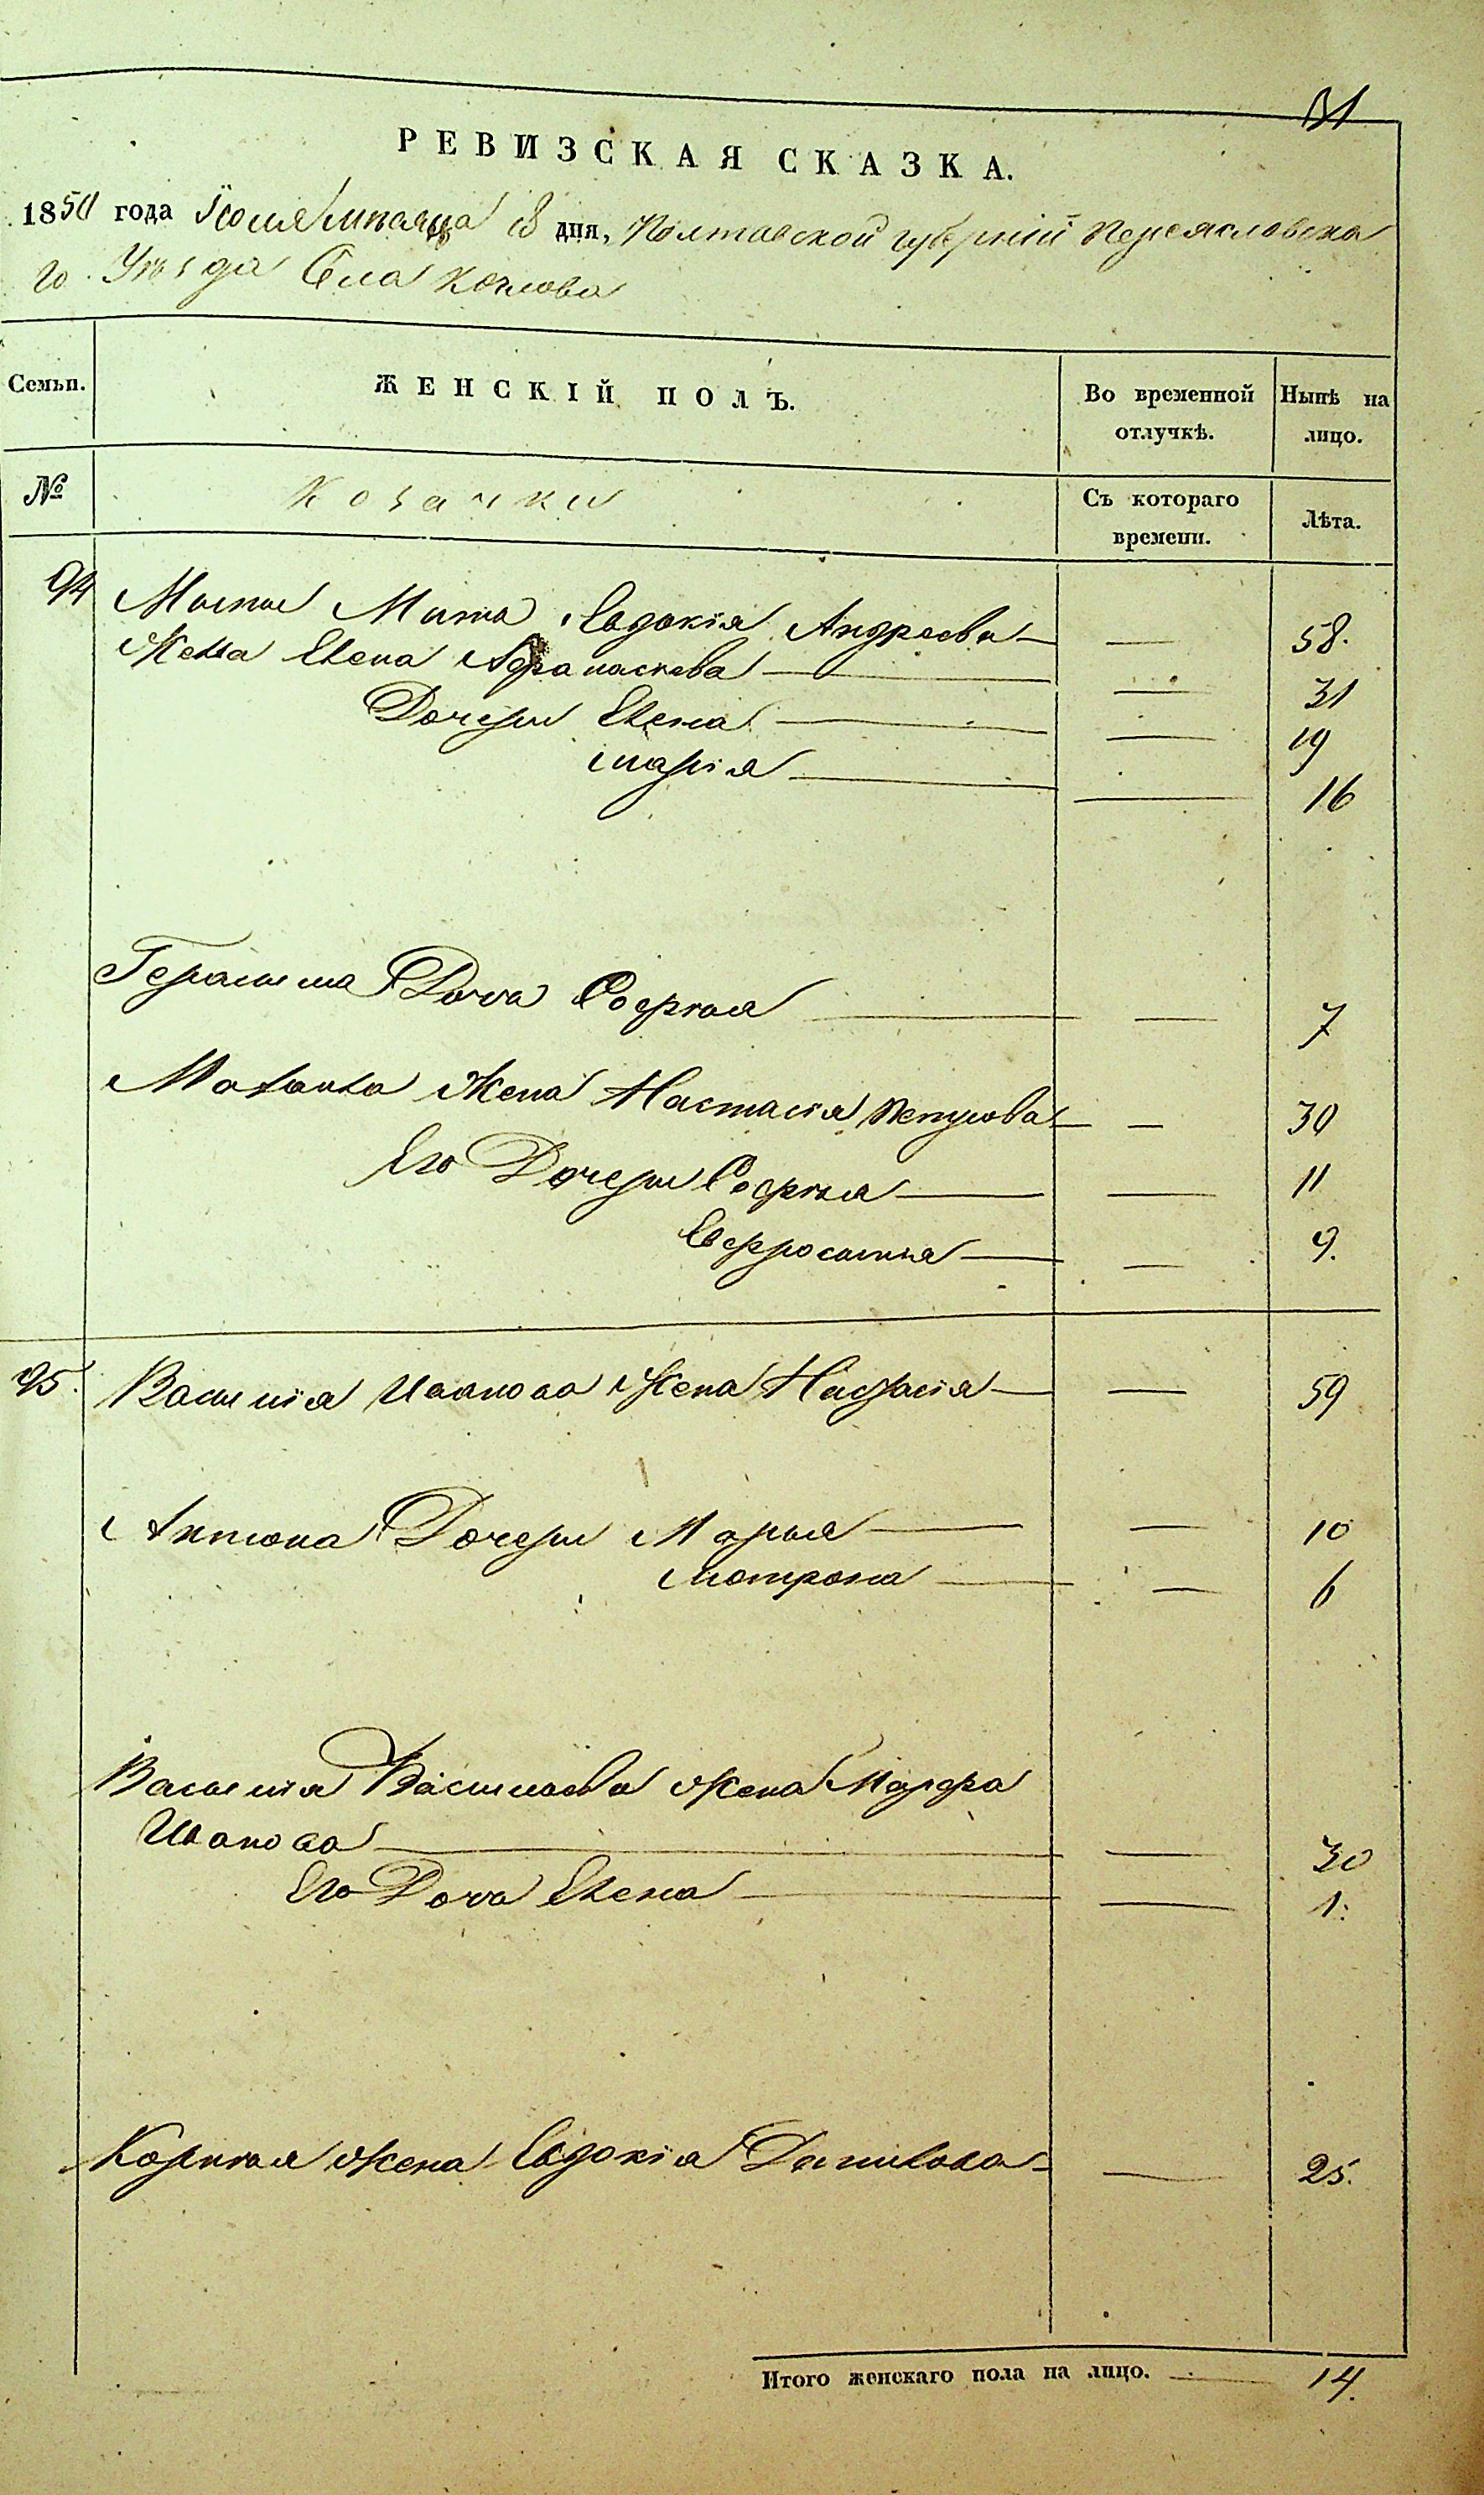 РЕВИЗСКАЯ СКАЗКА.
1850 года дня, Полтавской губерніи Переясловска
го Уѣзда Села
Семьи. ЖЕНСКІЙ ПОЛЪ. Во временной отлучкѣ. Нынѣ на лицо.
№ Козачки Съ котораго времени. Лѣта.
94 Мати Евдокія Андреева — — 58.
Жена Елена Афанасиева — — 31
Дочери Елена — — 19
марія — — 16
Герасима Доча Софія — — 7
Жена Настасія — — 30
Его Дочери Софія — — 11
Евфросинія — — 9.
95. Василія Иванова Жена Настасія — — 59
Антона Дочери Марья — — 10
мотрона — — 6
Василія Васильева жена Марфа
Иванова — — 30
Его Доча Елена — — 1.
Корнія жена Евдокія Данилова — — 25.
Итого женскаго пола на лицо. — 14.